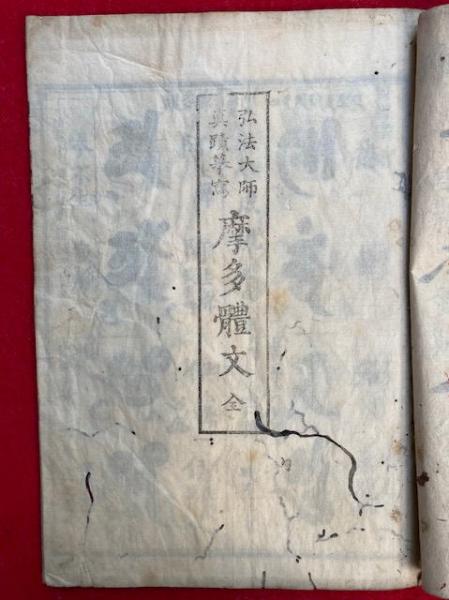 弘法大師
真蹟摹寫
摩多體文 全